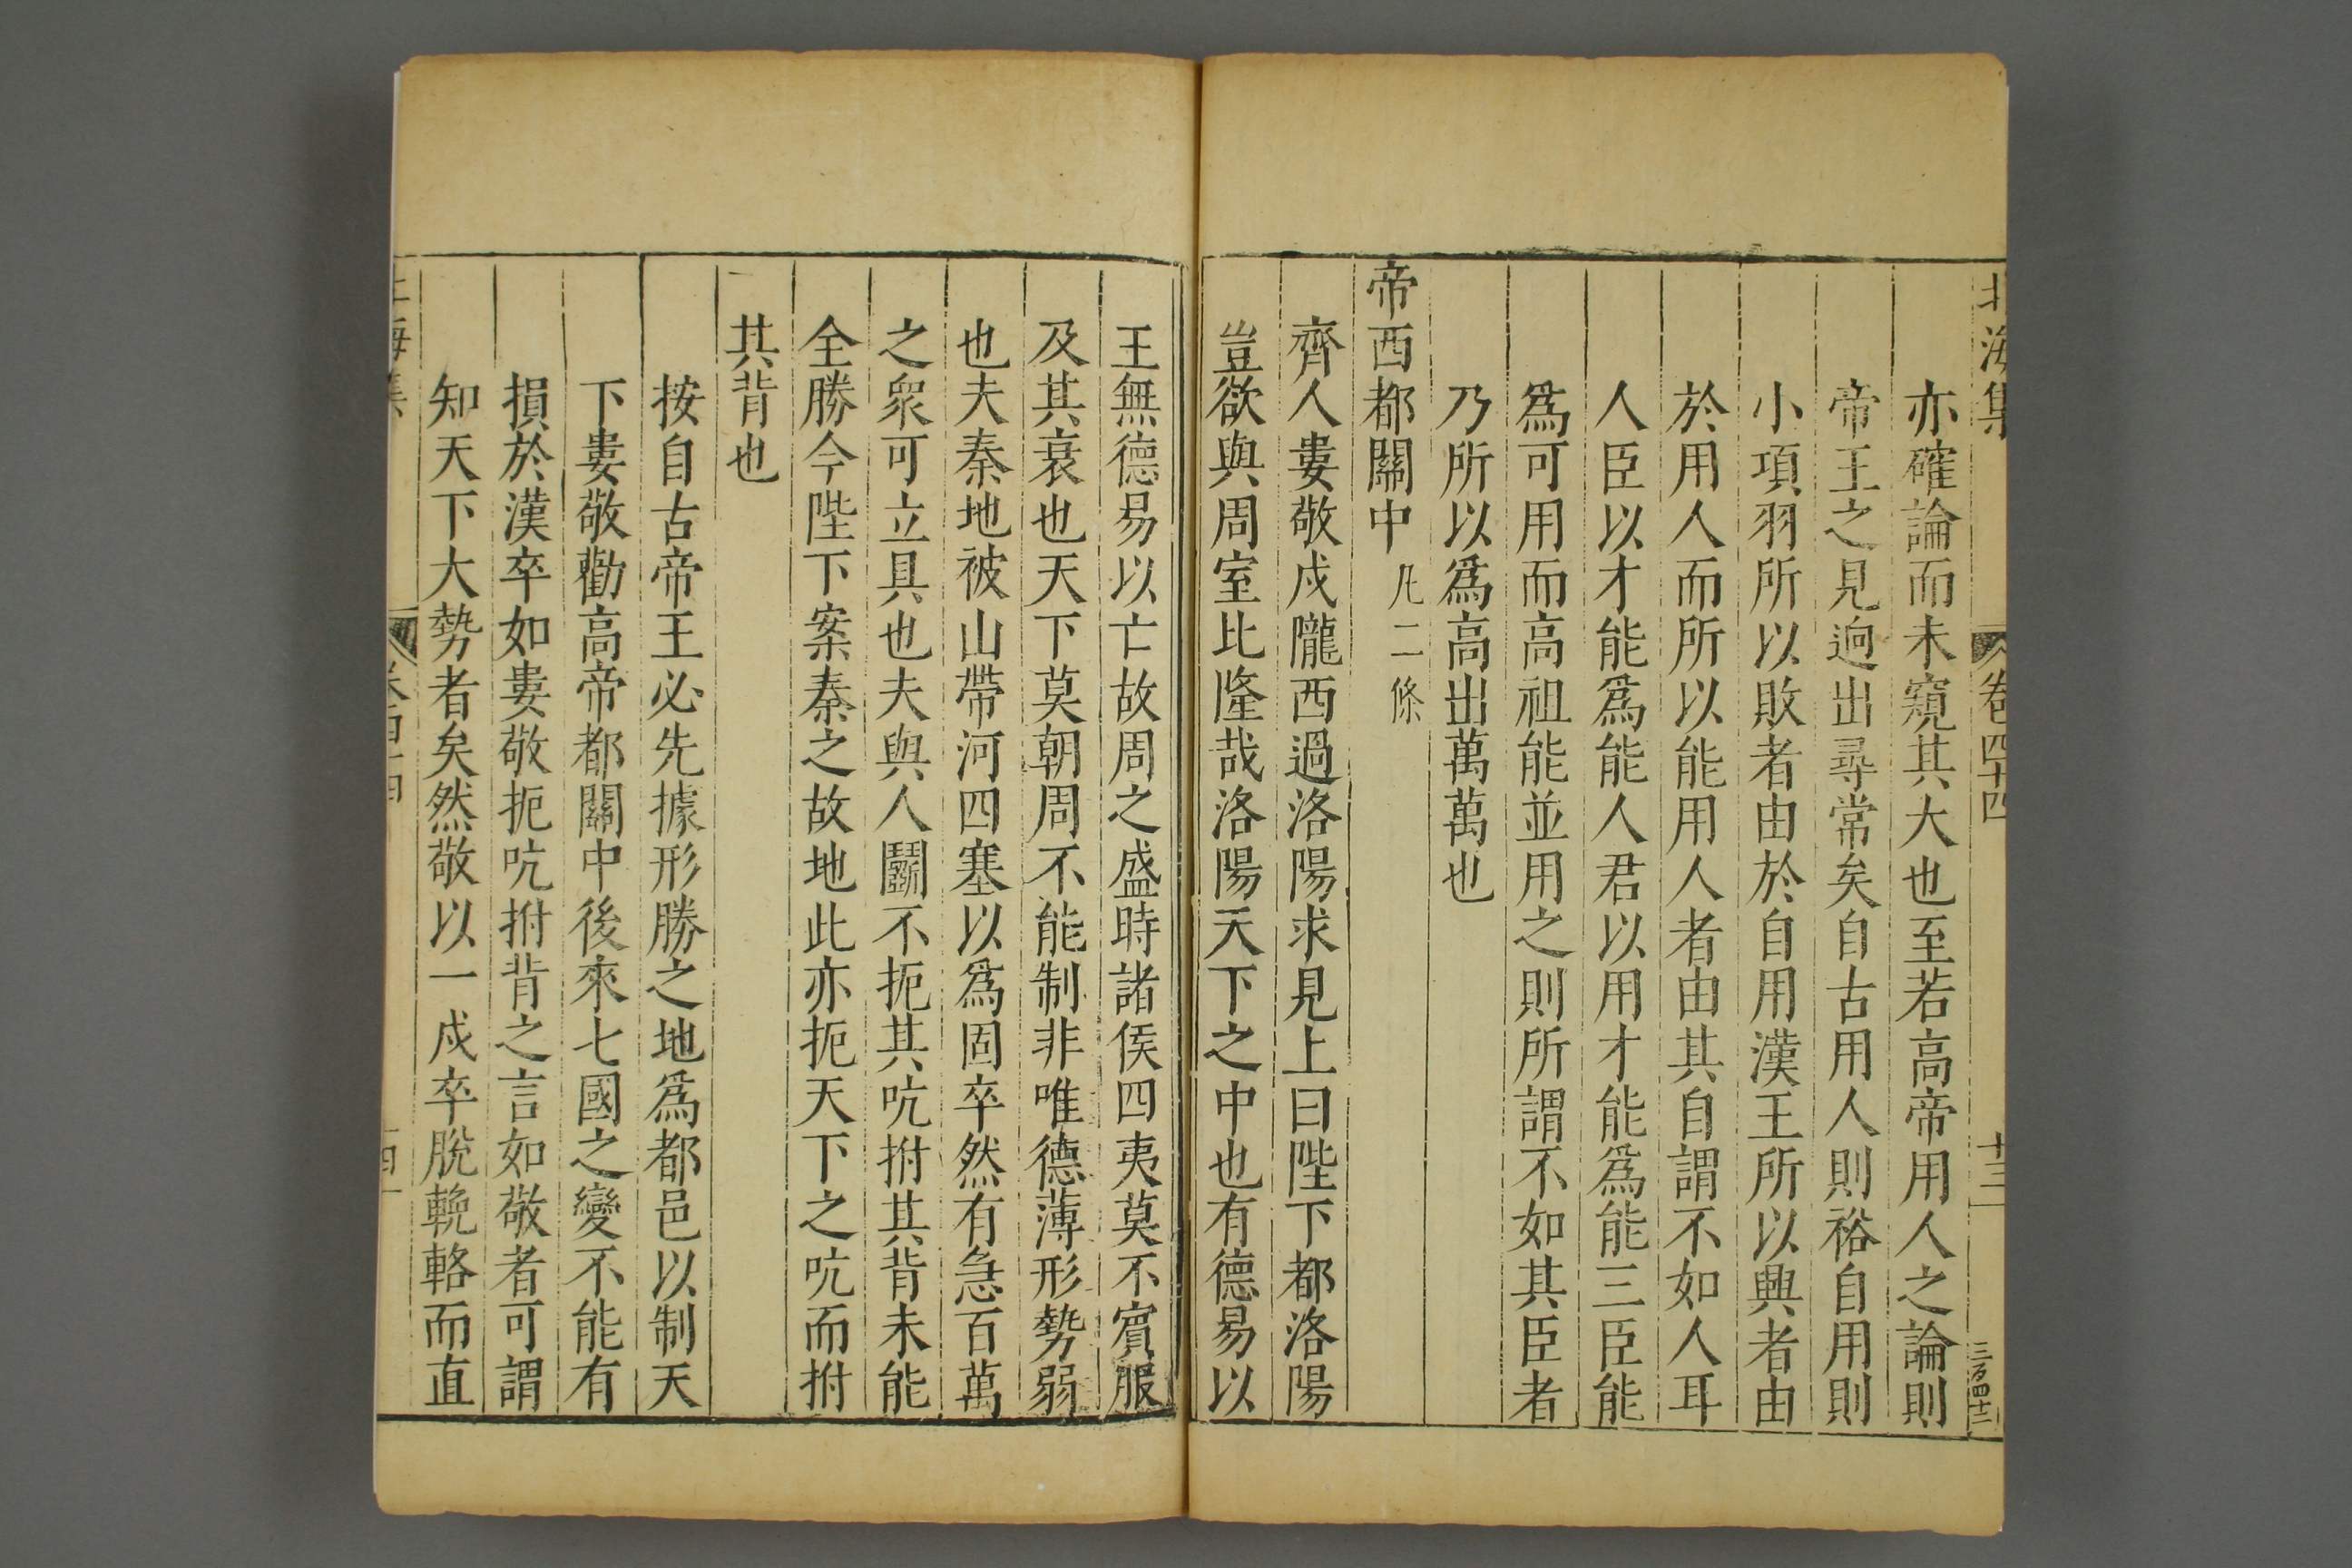 北海集 卷四十四 十三 三百四十三
亦確論而未窺其大也至若高帝用人之論則
帝王之見逈出尋常矣自古用人則裕自用則
小項羽所以敗者由於自用漢王所以興者由
於用人而所以能用人者由其自謂不如人耳
人臣以才能爲能人君以用才能爲能三臣能
爲可用而高祖能並用之則所謂不如其臣者
乃所以爲高出萬萬也
帝西都關中 凡二條
齊人婁敬戍隴西過洛陽求見上曰陛下都洛陽
豈欲與周室比隆哉洛陽天下之中也有德易以
王無德易以亡故周之盛時諸侯四夷莫不賔服
及其衰也天下莫朝周不能制非唯德薄形勢弱
也夫秦地被山帶河四塞以爲固卒然有急百萬
之衆可立具也夫與人鬬不扼其吭拊其背未能
全勝今陛下案秦之故地此亦扼天下之吭而拊
其背也
按自古帝王必先據形勝之地爲都邑以制天
下婁敬勸高帝都關中後來七國之變不能有
損於漢卒如婁敬扼吭拊背之言如敬者可謂
知天下大勢者矣然敬以一戍卒脫輓輅而直